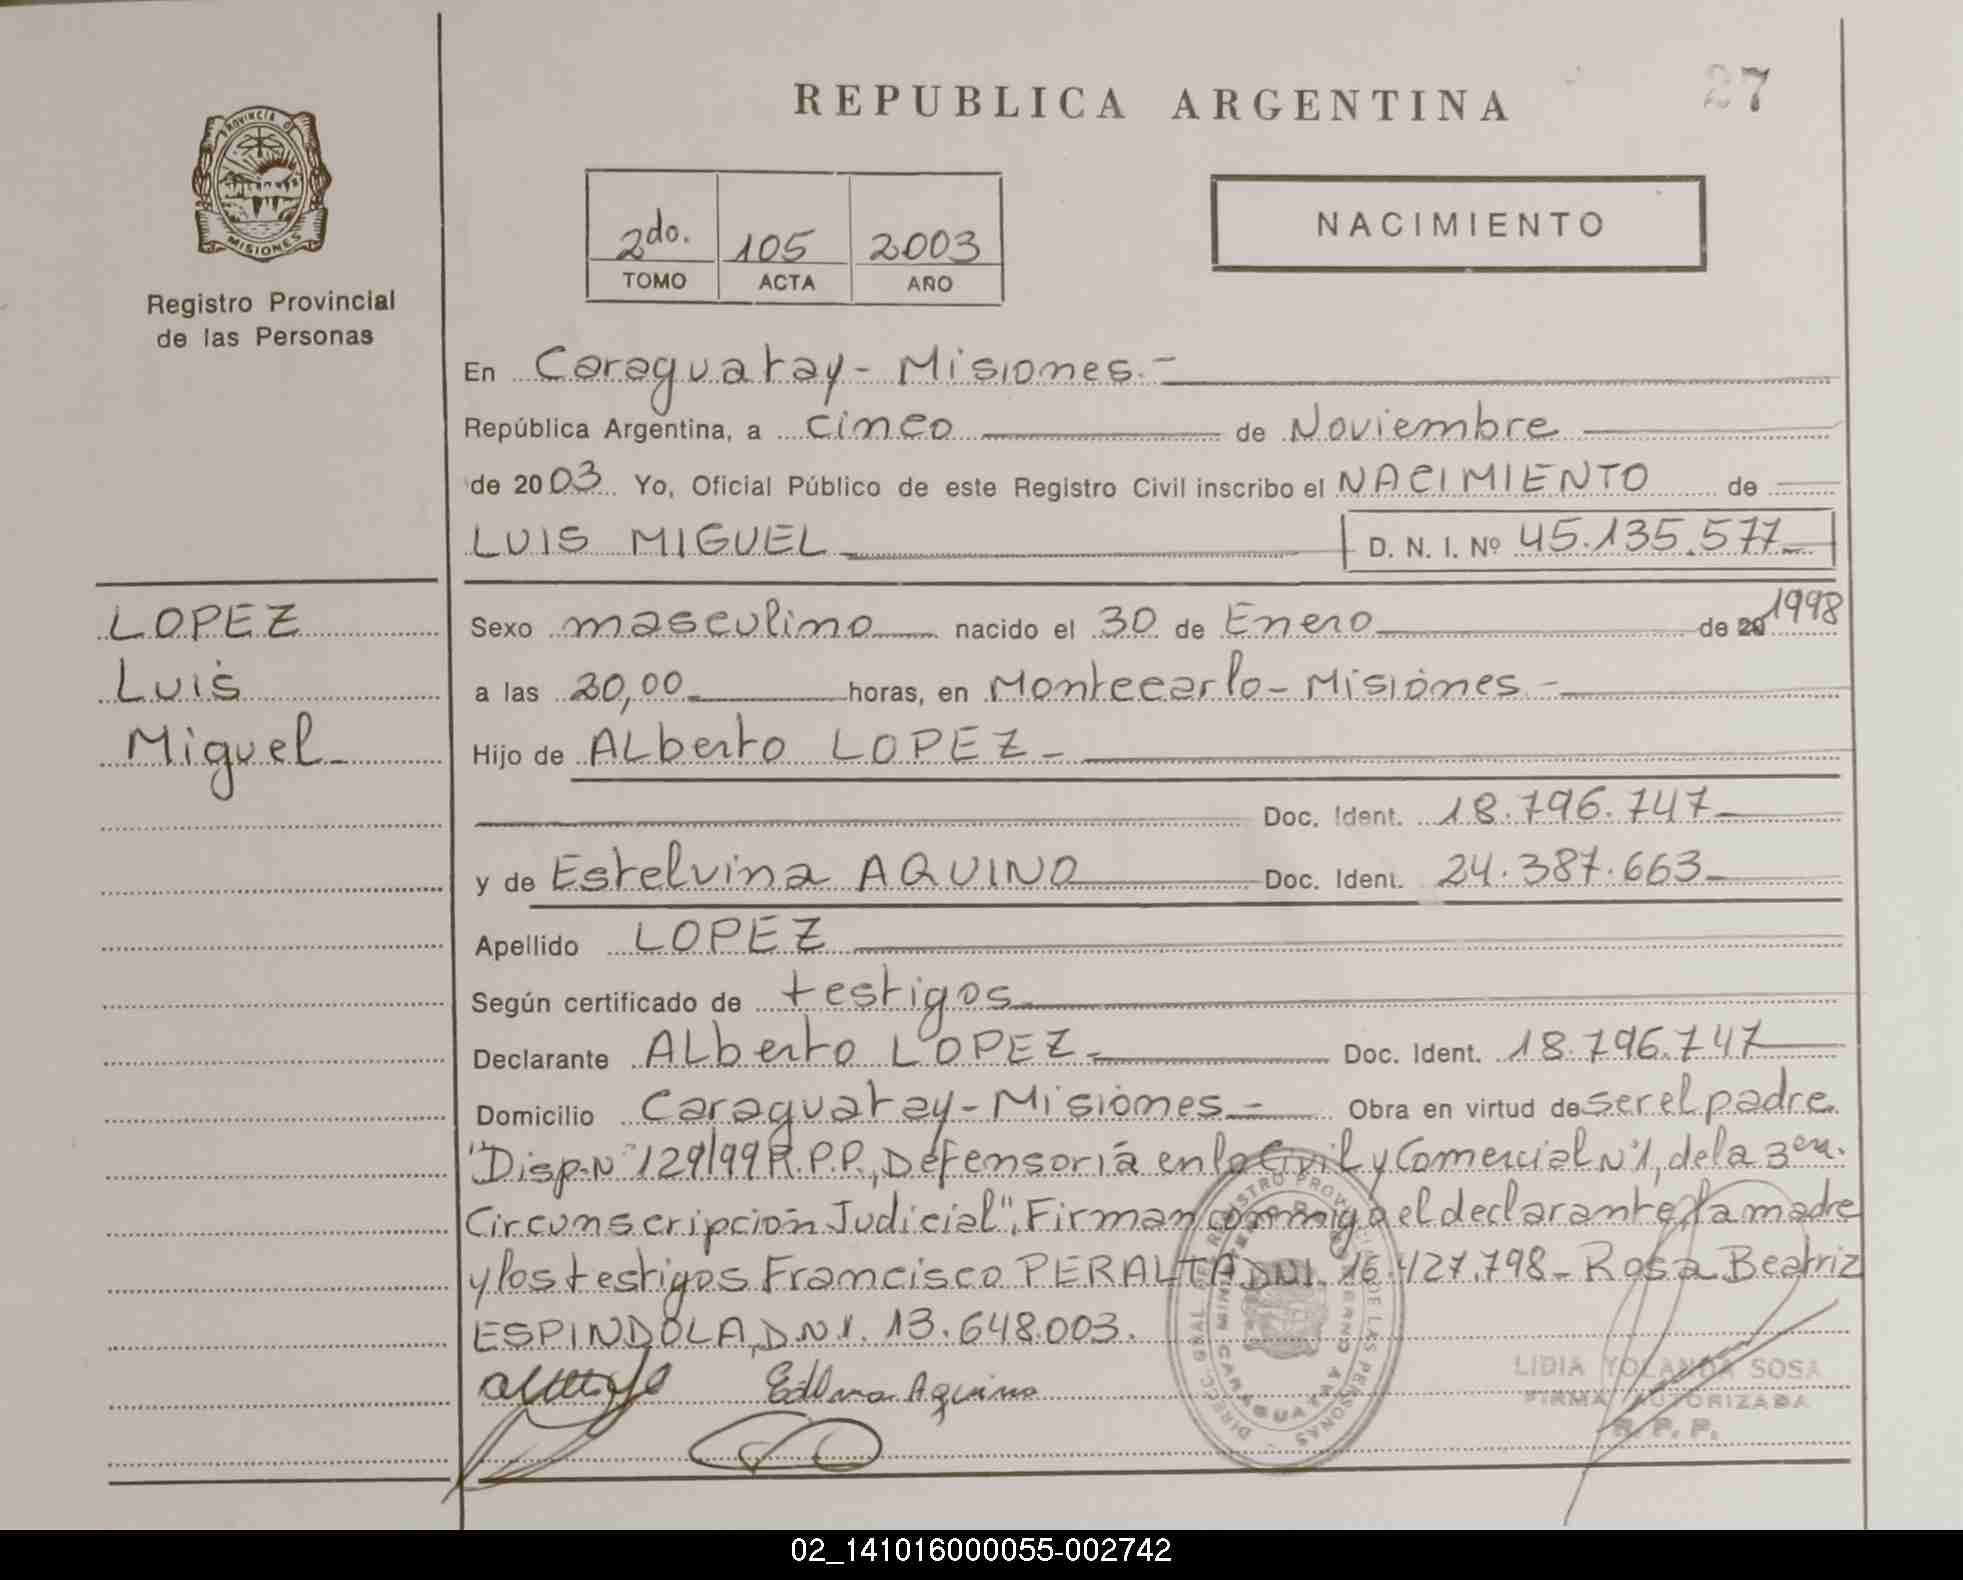 REPUBLICA ARGENTINA
27
PROVINCIA D
MISIONES
Registro Provincial
de las Personas
2do. 105 2003
TOMO ACTA AÑO
NACIMIENTO
En Caraguatay - Misiones.-
República Argentina, a cinco de Noviembre
de 2003 Yo, Oficial Público de este Registro Civil inscribo el NACIMIENTO de
LUIS MIGUEL D. N. I. Nº 45.135.577
LOPEZ
Luis
Miguel
Sexo masculino nacido el 30 de Enero de 20 1998
a las 20,00 horas, en Montecarlo - Misiones -
Hijo de ALberto LOPEZ -
Doc. Ident. 18.796.747
y de Estelvina AQUINO Doc. Ident. 24.387.663
Apellido LOPEZ
Según certificado de testigos
Declarante ALberto LOPEZ - Doc. Ident. 18.796.747
Domicilio Caraguatay - Misiones - Obra en virtud de ser el padre
"Disp. N° 129/99 R.P.P., Defensoría en lo Civil y Comercial N°1, de la 3era.
Circunscripción Judicial", Firman conmigo el declarante, la madre
y los testigos Francisco PERALTA DNI. 16.427.798 - Rosa Beatriz
ESPINDOLA, D.N.I. 13.648.003.
Aquino
LIDIA YOLANDA SOSA
FIRMA AUTORIZADA
R. P. P.
02_141016000055-002742